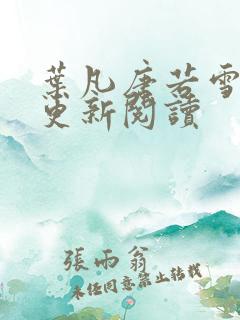 葉凡唐若雪
更新閱讀
張雨翁
未任同意禁止轉載